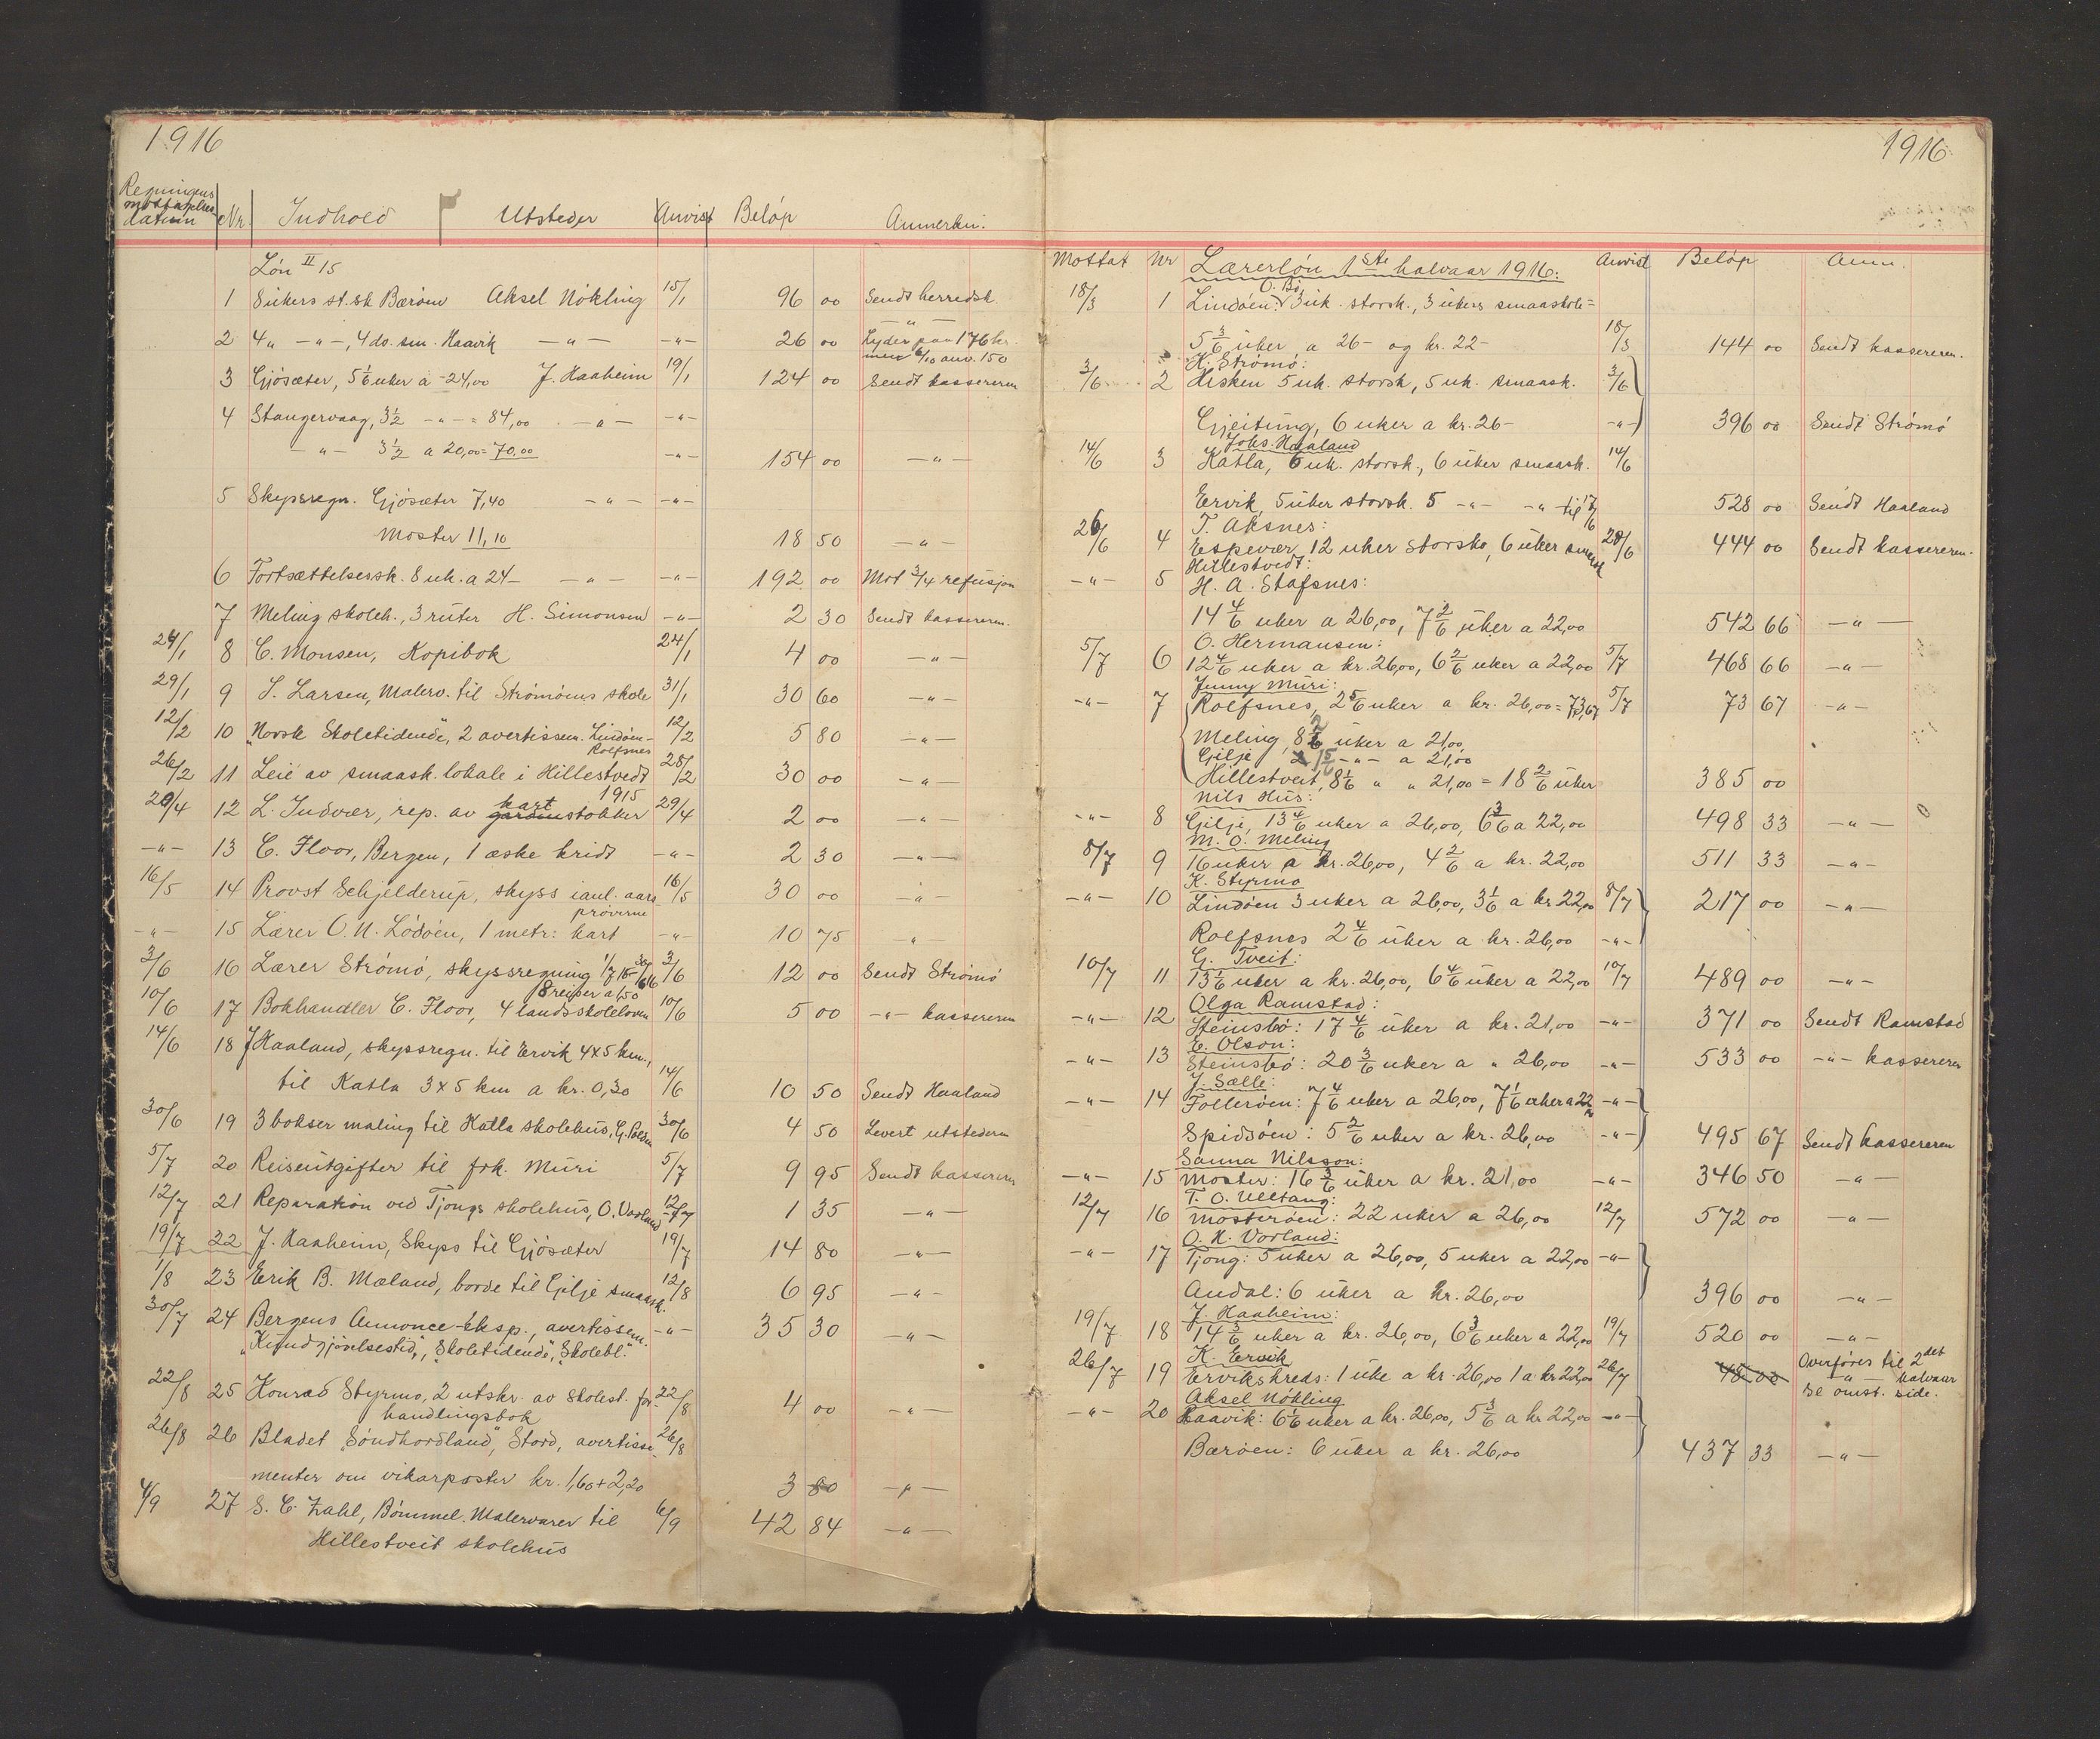 1916
Regningens mottagelses datum Nr. Indhold Utsteder Anvist Beløp Anmerkn.
Løn II 15
1 8 ukers st. sk Bærøen Aksel Nökling 15/1 96 00 Sendt herredsk.
2 4 „ -„-, 4 do. sm. Haavik -„- -„- 26 00 Lyder paa 176 kr.
men 6/10 anv. 150
3 Gjøsæter, 5 1/6 uker a -24,00 J. Haaheim 19/1 124 00 Sendt kassereren
4 Stangervaag, 3 1/2 -„- = 84,00 -„- -„-
-„- 3 1/2 a 20,00 = 70,00 -„- 154 00 -„-
5 Skyssregn. Gjøsæter 7,40 -„- -„-
Moster 11,10 18 50 -„-
6 Fortsættelsessk. 8 uk. a 24- -„- -„- 192 00 Mot 3/4 refusjon
7 Meling skoleh., 3 ruter H. Simonsen -„- 2 30 Sendt kassereren.
24/1 8 C. Monsen, Kopibok 24/1 4 00 -„-
29/1 9 S. Larsen, Malerv. til Strømøens skole 31/1 30 60 -„-
12/2 10 „Norsk Skoletidende", 2 avertissem. Lindøen- Rolfsnes 12/2 5 80 -„-
26/2 11 Leie av smaask. lokale i Hillestvedt 1915 28/2 30 00 -„-
29/4 12 L. Indvær, rep. av kart gardinstokker 29/4 2 00 -„-
-„- 13 C. Floor, Bergen, 1 æske kridt -„- 2 30 -„-
16/5 14 Provst Schjelderup, skyss i anl. aars prøverne 16/5 30 00 -„-
-„- 15 Lærer O. N. Lødøen, 1 metr: kart -„- 10 75 -„-
3/6 16 Lærer Strømø, skyssregning 1/7 15- 30/6 16 3/6 12 00 Sendt Strømø
8 reiser a 1,50
10/6 17 Bokhandler C. Floor, 4 landsskoleloven 10/6 5 00 -„- kassereren
14/6 18 J Haaland, skyssregn. til Ervik 4x5 km.,
til Katla 3 x 5 km a kr. 0,30 14/6 10 50 Sendt Haaland
30/6 19 3 bokser maling til Katla skolehus, G. 30/6 4 50 Levert utstederen
5/7 20 Reiseutgifter til frk. Muri 5/7 9 95 Sendt kassereren
12/7 21 Reparation ved Tjongs skolehus, O. Vorland 12/7 1 35 -„-
19/7 22 J. Haaheim, Skyss til Gjøsæter 19/7 14 80 -„-
1/8 23 Erik B. Mæland, borde til Gilje smaask. 12/8 6 95 -„-
30/7 24 Bergens Annonce-Eksp., avertissem. -„- 35 30 -„-
„Kundgjørelsestid.", „Skoletidende", „Skolebl."
22/8 25 Konrad Styrmo, 2 utskr. av skolest. for- 22/8 4 00 -„-
handlingsbok
26/8 26 Bladet „Søndhordland", Stord, avertisse- 26/8
menter om vikarposter kr. 1,60 + 2,20 3 80 -„-
4/9 27 S. C. Zahl, Bømmel. Malervarer til 6/9 42 84 -„-
Hillestveit skolehus
1916
Mottat Nr Lærerløn 1ste halvaar 1916: Anvist Beløp Anm.
O. Bø
18/3 1 Lindøen: 3 uk. storsk., 3 ukers smaaskole =
5 3/6 uker a 26- og kr. 22- 18/3 144 00 Sendt kassereren.
H. Strømø:
3/6 2 Hisken 5 uk. storsk, 5 uk. smaask. 3/6
Gjeitung, 6 uker a kr. 26- -„- 396 00 Sendt Strømø
Johs. Haaland
14/6 3 Katla, 6 uk. storsk., 6 uker smaask. 14/6
Ervik, 5 uker storsk. 5 -„- -„- til 17/6 528 00 Sendt Haaland
T. Aksnes:
26/6 4 Espevær 12 uker storsko, 6 uker smaask 28/6 444 00 Sendt kassereren.
Hillestvedt:
-„- 5 H. A. Stafsnes:
14 4/6 uker a 26,00, 7 2/6 uker a 22,00 542 66 -„-
O. Hermansen:
5/7 6 12 4/6 uker a kr. 26,00, 6 2/6 uker a 22,00 5/7 468 66 -„-
Jenny Muri:
-„- 7 Rolfsnes, 2 5/6 uker a kr. 26,00 = 73,67 5/7 73 67 -„-
Meling, 8 2/6 uker a 21,00
Gilje 1 5/6 -„- a 21,00
Hillestveit, 8 1/6 „ „ 21,00 = 18 2/6 uker 385 00
Nils Hus:
-„- 8 Gilje, 13 4/6 uker a 26,00, 6 3/6 a 22,00 498 33 -„-
M. O. Meling
8/7 9 16 uker a kr. 26,00, 4 2/6 a kr. 22,00 511 33 -„-
K. Styrmo
-„- 10 Lindøen 3 uker a 26,00, 3 1/6 a kr 22,00 8/7 217 00 -„-
Rolfsnes 2 4/6 uker a kr. 26,00 -„-
G. Tveit:
10/7 11 13 1/6 uker a kr. 26,00, 6 4/6 uker a 22,00 10/7 489 00 -„-
Olga Ramstad:
-„- 12 Steinsbø: 17 4/6 uker a kr. 21,00 -„- 371 00 Sendt Ramstad
E. Olson:
-„- 13 Steinsbø: 20 3/6 uker a „ 26,00 -„- 533 00 -„- kassereren
J. Sælle:
-„- 14 Follerøen: 7 4/6 uker a 26,00, 7 1/6 uker a 22,00 -„-
Spidsøen: 5 2/6 uker a kr. 26,00 -„- 495 67 Sendt kassereren
Sanna Nilsson:
-„- 15 Moster: 16 3/6 uker a kr. 21,00 -„- 346 50 -„-
T. O. Ulltang:
12/7 16 Mosterøen: 22 uker a 26,00 12/7 572 00 -„-
O. H. Vorland:
-„- 17 Tjong: 5 uker a 26,00, 5 uker a 22,00 -„-
Andal: 6 uker a kr. 26,00 396 00 -„-
J. Haaheim:
19/7 18 14 3/6 uker a kr. 26,00, 6 3/6 uker a 22,00 19/7 520 00 -„-
K. Ervik
26/7 19 Ervikskreds: 1 uke a kr. 26,00 1 a kr 22,00 26/7 48 00 Overføres til 2det
-„- halvaar
Se omst. side.
Aksel Nökling
-„- 20 Haavik: 6 1/6 uker a kr. 26,00, 5 3/6 a kr 22,00 -„-
Bærøen: 6 uker a kr. 26,00 437 33 -„-